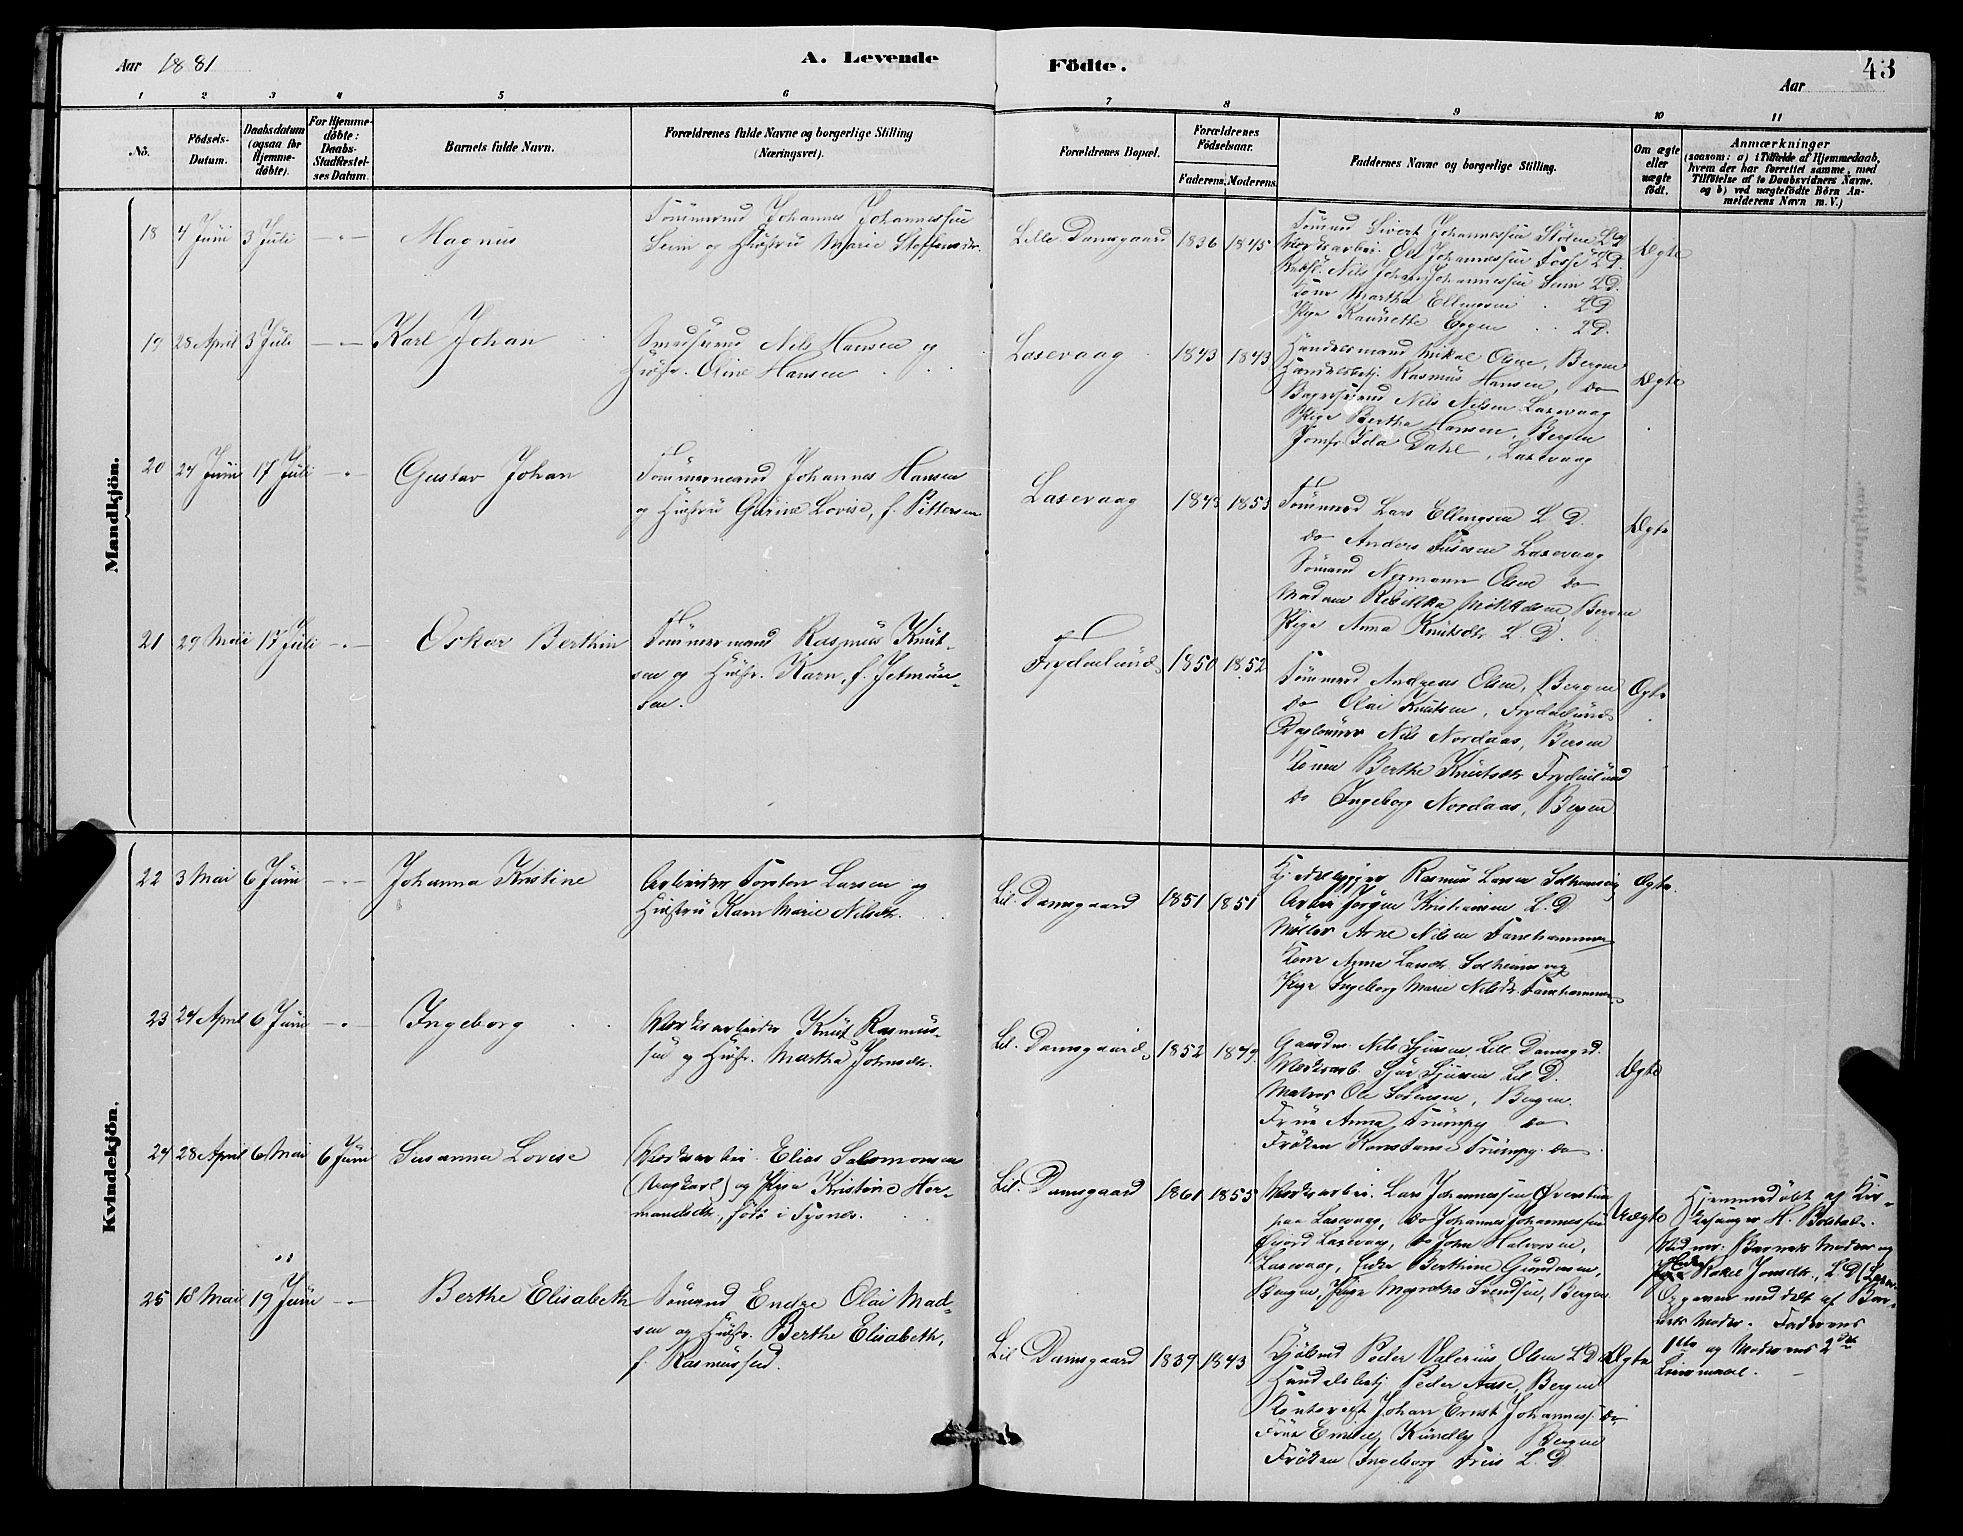 Aar 1881
A. Levende
Födte.
Aar
43
1 2 3 4 5 6 7 8 9 10 11
No.
Födsels-Datum.
Daabsdatum (ogsaa for Hjemmedøbte).
For Hjemmedøbte: Daabs-Stadfæstelses Datum.
Barnets fulde Navn.
Forældrenes fulde Navne og borgerlige Stilling (Næringsvei).
Forældrenes Bopæl.
Forældrenes Födselsaar.
Faderens. Moderens.
Faddernes Navne og borgerlige Stilling.
Om ægte eller uægte födt.
Anmærkninger
(saasom: a) i Tilfælde af Hjemmedaab,
hvem der har forrettet samme, med
Tilføielse af to Daabsvidners Navne.
og b) ved uægtefödte Börn An-
melderens Navn m. V.)
Mandkjön.
18 4 Juni 3 Juli Magnus
Tömmermd Johannes Johannessen
Seim og Hustru Marie Steffensdr.
Lille Damsgaard 1836 1845
Tömmd Sivert Johannessen Stöen LD
Værksarbei. Ole Johannessen Fosse LD.
Nils Johannessen Seim LD.
Kone Martha Ellingsen LD
Pige Kannette LD.
Ægte
19 28 April 3 Juli Karl Johan
Smedsvend Nils Hansen og
Hustr. Oline Hansen
Laxevaag 1843 1843
Handelsmand Mikal Olsen, Bergen
Handelsbetj. Rasmus Hansen, do
Bagersvend Nils Nilsen Laxevaag
Pige Berthe Hansen, Bergen
Jomfr Ida Dahl, Laxevaag
Ægte
20 24 Juni 17 Juli Gustav Johan
Tömmermand Johannes Hansen
og Hustru Gurine Lovise, f. Pettersen
Laxevaag 1843 1853
Tömmermd Lars Ellingsen L. D.
do Anders Laxevaag
Sömand Normann Olsen do
Madam Rebekka Bergen
Pige Anna Knutsdtr L. D.
Ægte
21 29 Mai 17 Juli Oskar Berthin
Tömmermand Rasmus Knut-
sen og Hustr. Karn, f. Jetmun-
sen.
Frydenlund 1850 1852
Tömmermd Andreas Olsen, Bergen
do Olai Knutsen, Frydenlund
Daglönner Nils Nordaas, Bergen
Kone Berthe Knutsdtr Frydenlund
do Ingeborg Nordaas, Bergen
Ægte
Kvindekjön.
22 3 Mai 6 Juni Johanna Kristine
Arbeider Torsten Larsen og
Hustru Karn Marie Nilsdtr.
Lil. Damsgaard 1851 1851
Rasmus Larsen Solheimsvig
Arbei Jörgen Kristiansen L. D
Möller Arne Nilsen
Kone Anna Larsdtr Solheimsvig
Pige Ingeborg Marie Nilsdtr
Ægte.
23 24 April 6 Juni Ingeborg
Værksarbeider Knut Rasmus-
sen og Hustr. Martha Johnsdtr.
Lil. Damsgaard 1852 1849
Gaardm. Nils Sjursen Lill. Damsgrd.
Værksarb. Sjur Sjursen Lil D.
Matros Ole Sörensen, Bergen.
Frue Anna Trumpy do
Fröken Konstanse Trumpy do
Ægte
24 28 April 6 Mai 6 Juni Susanna Lovise
Værksarbei. Elias Salomonsen
(Ungkarl) og Pige Kristine Her-
mandsdtr, född i Tysnes.
Lil. Damsgaard 1861 1855
Værksarbei. Lars Johannessen
paa Laxevaag, do Johannes Johannessen
Laxevaag, do John Halvorsen,
Laxevaag, Enke Berthine Gundersen,
Bergen, Pige Svendsen, Bergen
Uægte
Hjemmedöbt af Kir-
kesanger H. Bolstad.
Vidner: Barnets Moder og
Rakel Jonsdtr., L D (Laxev
Opgaven meddelt af Bar-
nets Moder. Faderens
1ste og Moderens 2det
Leiermaal.
25 18 Mai 19 Juni Berthe Elisabeth
Sömand Endre Olai Mad-
sen og Hustr. Berthe Elisabeth,
f. Rasmussen.
Lil. Damsgaard 1839 1843
Peder Valerius Olsen L D
Handelsbetj. Peder Aase, Bergen
Kontorist Johan Ernst Johanness. do
Frue Emilie Bergen
Fröken Ingeborg Friis L. D
Ægte